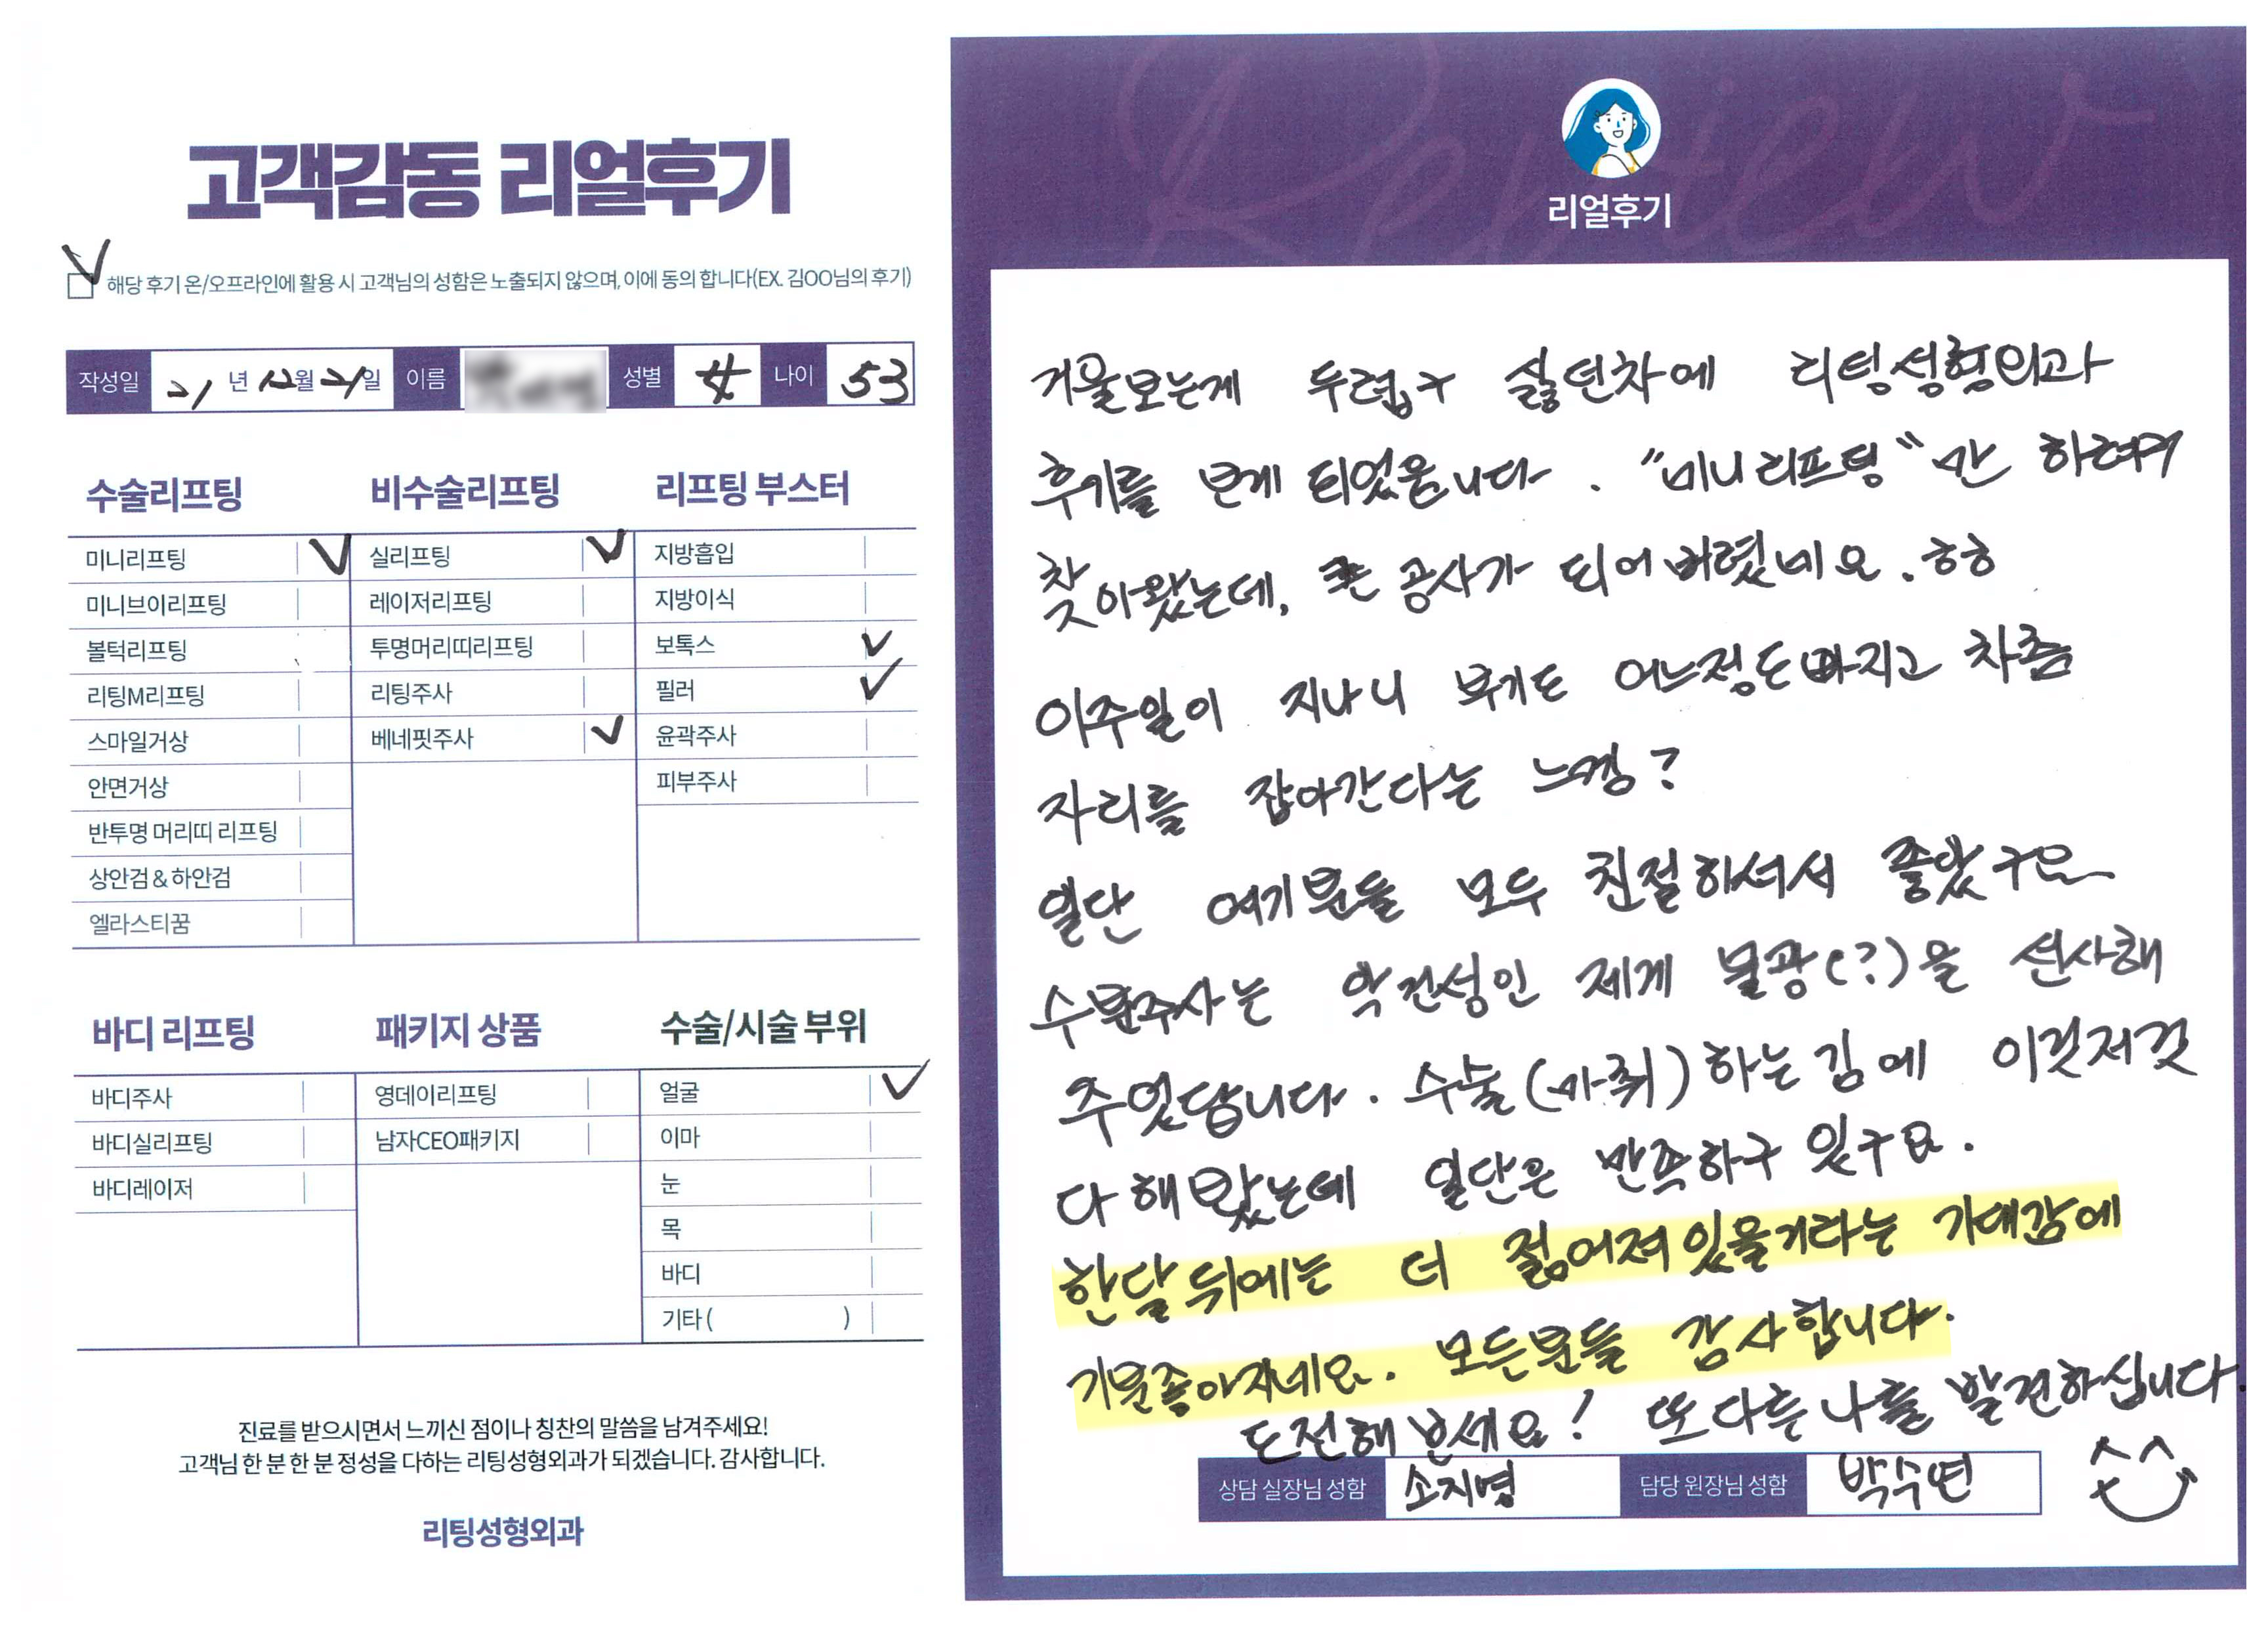 고객감동 리얼후기
해당 후기 온/오프라인에 활용 시 고객님의 성함은 노출되지 않으며, 이에 동의 합니다(EX. 김OO님의 후기)
작성일 21 년 12월 21일 이름 성별 女 나이 53
수술리프팅
미니리프팅
미니브이리프팅
볼턱리프팅
리팅M리프팅
스마일거상
안면거상
반투명 머리띠 리프팅
상안검 & 하안검
엘라스티꿈
비수술리프팅
실리프팅
레이저리프팅
투명머리띠리프팅
리팅주사
베네핏주사
리프팅 부스터
지방흡입
지방이식
보톡스
필러
윤곽주사
피부주사
바디 리프팅
바디주사
바디실리프팅
바디레이저
패키지 상품
영데이리프팅
남자CEO패키지
수술/시술 부위
얼굴
이마
눈
목
바디
기타 ( )
진료를 받으시면서 느끼신 점이나 칭찬의 말씀을 남겨주세요!
고객님 한 분 한 분 정성을 다하는 리팅성형외과가 되겠습니다. 감사합니다.
리팅성형외과
Review
리얼후기
거울보는게 두렵구 싫던차에 리팅성형외과
후기를 보게 되었읍니다. "미니리프팅"만 하려거
찾아왔는데, 큰 공사가 되어버렸네요. ㅎㅎ
이주일이 지나니 붓기도 어느정도 빠지고 차츰
자리를 잡아간다는 느낌?
일단 여기분들 모두 친절하셔서 좋았구요
수분주사는 악건성인 제게 물광(?)을 선사해
주었답니다. 수술(마취)하는김에 이것저것
다 해봤는데 일단은 만족하구 있구요.
한달뒤에는 더 젊어져있을거라는 기대감에
기분좋아지네요. 모든분들 감사합니다.
도전해 보세요! 또다른 나를 발견하십니다.
상담 실장님 성함 소지영 담당 원장님 성함 박수연